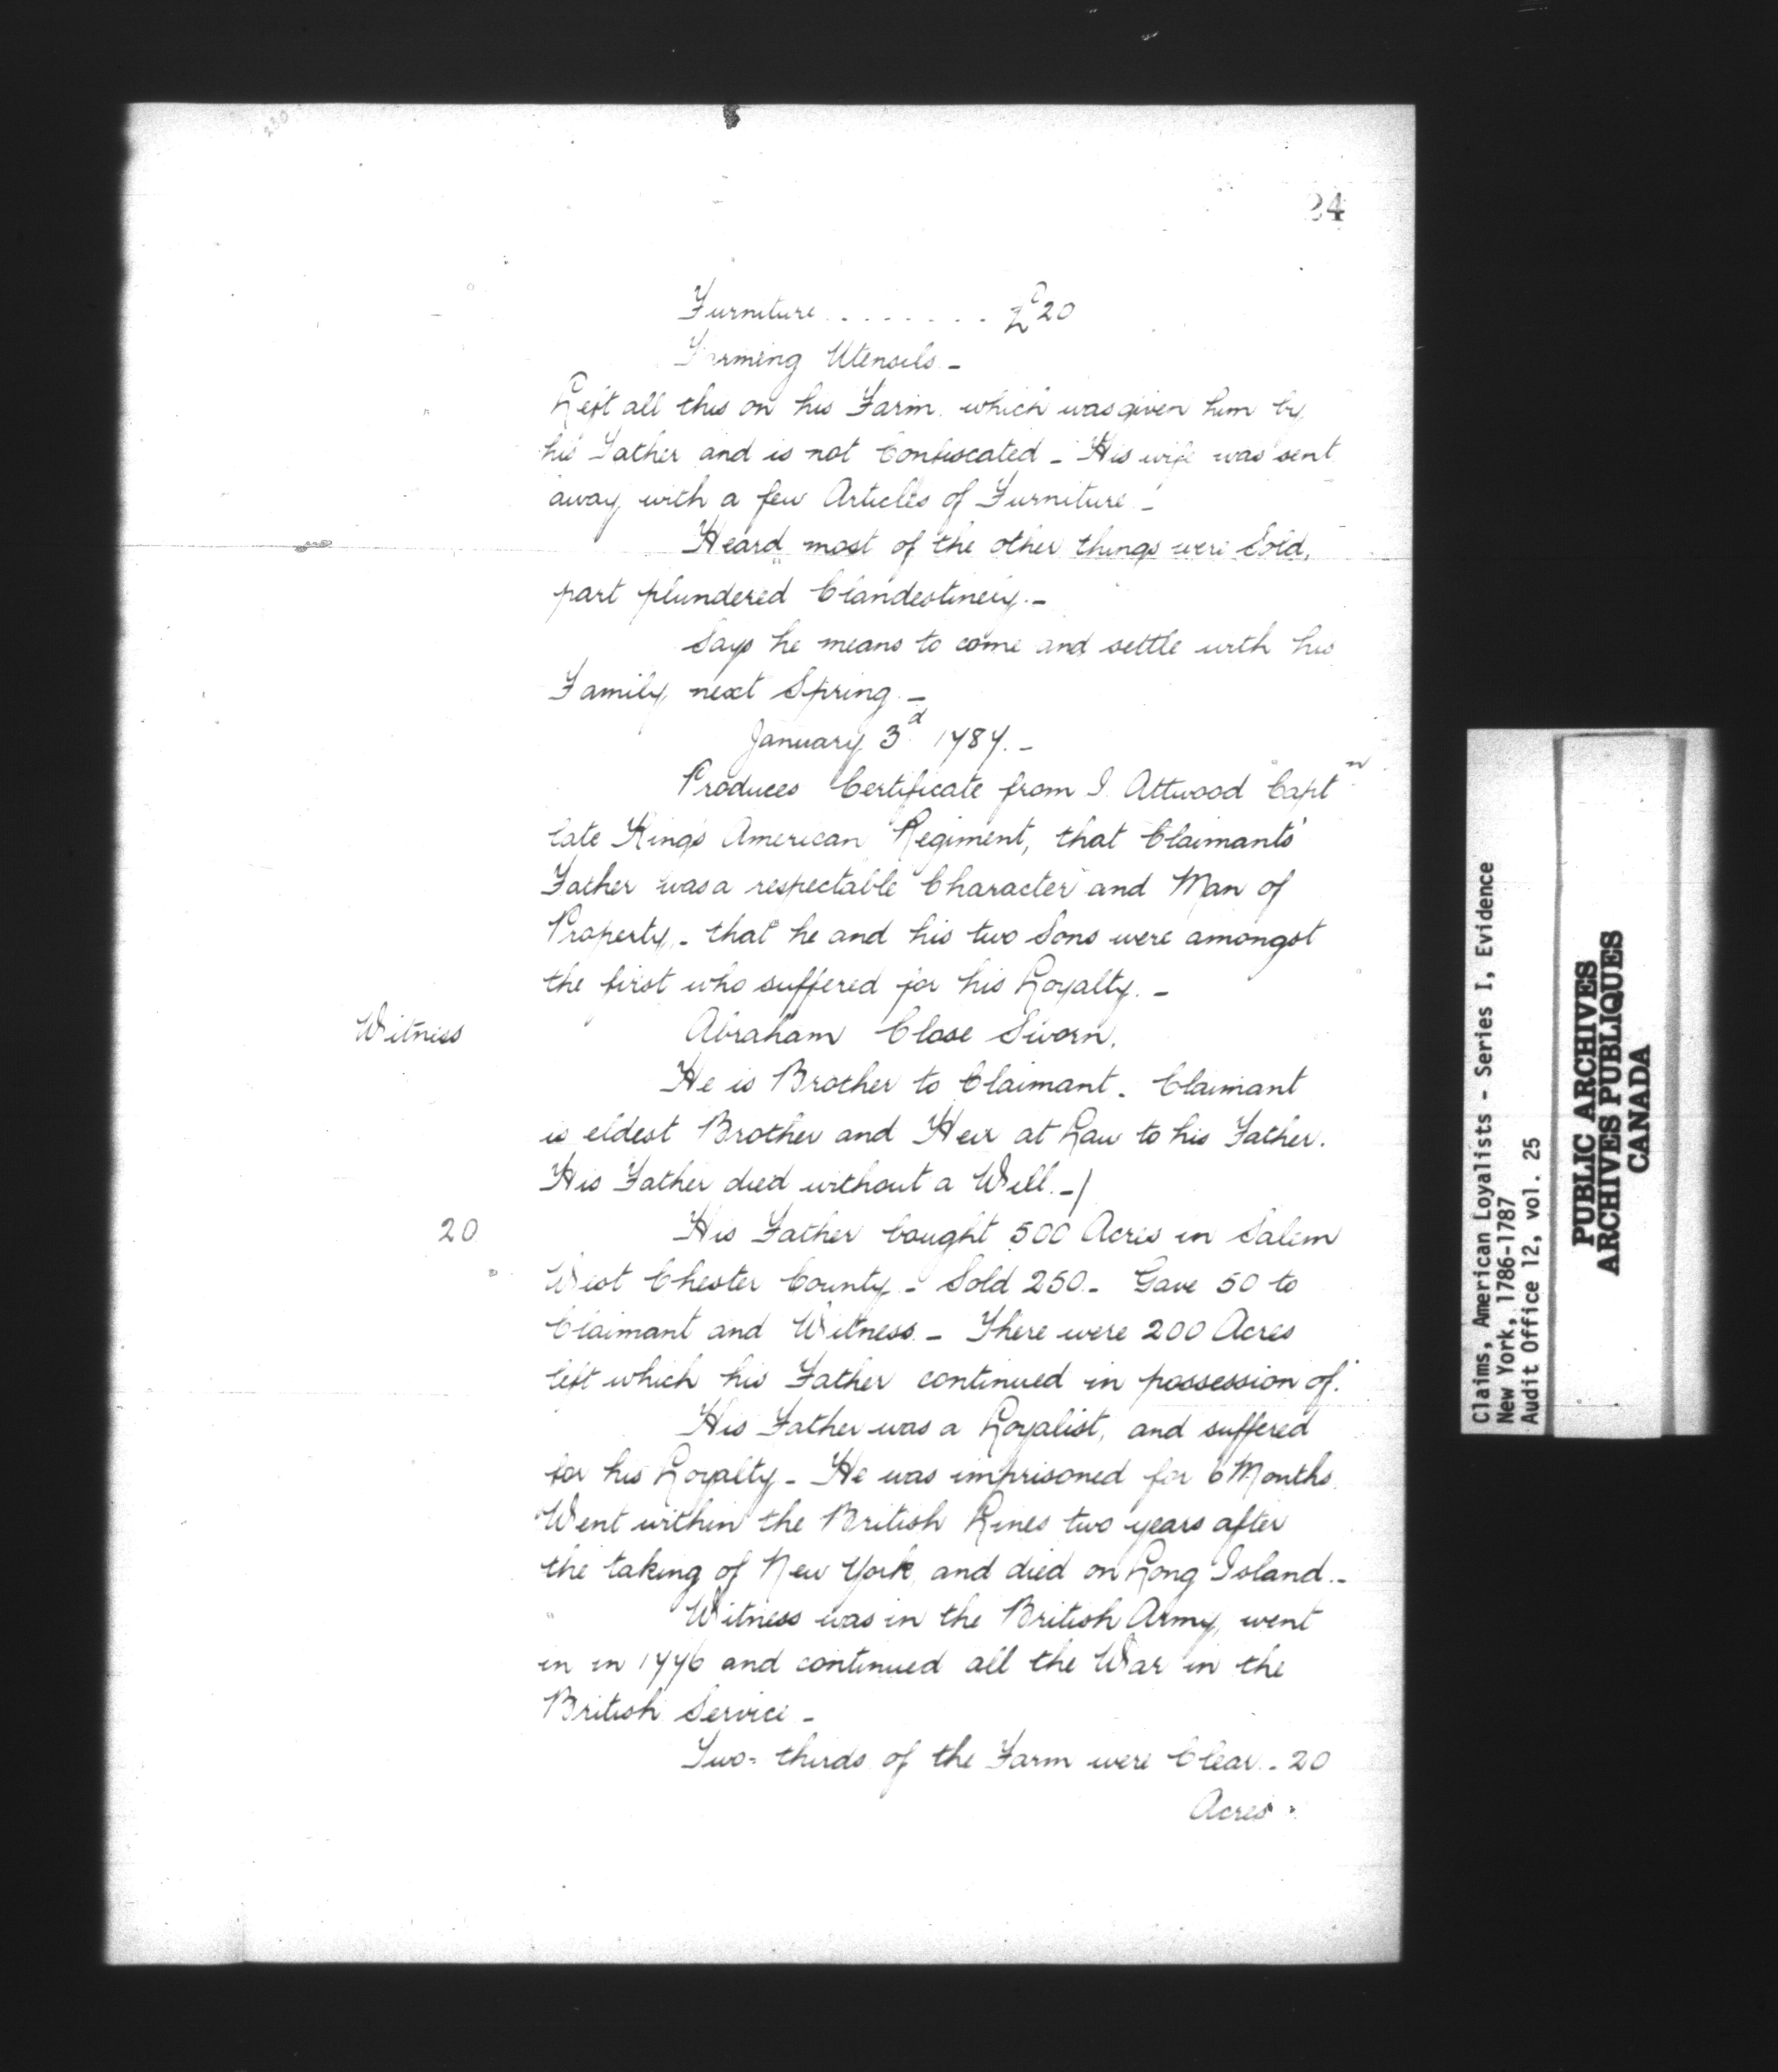 24
Furniture ........ £20
Farming Utensils -
Left all this on his Farm which was given him by
his Father and is not Confiscated - His wife was sent
away with a few Articles of Furniture -
Heard most of the other things were Sold,
part plundered Clandestinely. -
Says he means to come and settle with his
Family next Spring. -
January 3d 1787. -
Produces Certificate from I. Attwood Captn
late Kings American Regiment, that Claimants'
Father was a respectable Character and Man of
Property, - that he and his two Sons were amongst
the first who suffered for his Loyalty. -
Witness Abraham Close Sworn.
He is Brother to Claimant. Claimant
is eldest Brother and Heir at Law to his Father.
His Father died without a Will. -/
20 His Father bought 500 Acres in Salem
West Chester County - Sold 250 - Gave 50 to
Claimant and Witness. - There were 200 Acres
left which his Father continued in possession of.
His Father was a Loyalist, and suffered
for his Loyalty - He was imprisoned for 6 Months.
Went within the British Lines two years after
the taking of New York, and died on Long Island. -
Witness was in the British Army, went
in in 1776 and continued all the War in the
British Service -
Two-thirds of the Farm were Clear. - 20
Acres
Claims, American Loyalists - Series I, Evidence
New York, 1786-1787
Audit Office 12, vol. 25
PUBLIC ARCHIVES
ARCHIVES PUBLIQUES
CANADA